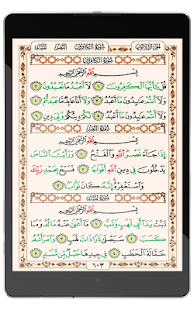 سُورَةُ الكَافِرُونَ
بِسْمِ اللَّهِ الرَّحْمَٰنِ الرَّحِيمِ
قُلْ يَٰٓأَيُّهَا ٱلْكَٰفِرُونَ ١ لَآ أَعْبُدُ مَا تَعْبُدُونَ ٢
وَلَآ أَنتُمْ عَٰبِدُونَ مَآ أَعْبُدُ ٣ وَلَآ أَنَا۠ عَابِدٌ مَّا عَبَدتُّمْ ٤
وَلَآ أَنتُمْ عَٰبِدُونَ مَآ أَعْبُدُ ٥ لَكُمْ دِينُكُمْ وَلِيَ دِينِ ٦
سُورَةُ النَّصْرِ
بِسْمِ اللَّهِ الرَّحْمَٰنِ الرَّحِيمِ
إِذَا جَآءَ نَصْرُ ٱللَّهِ وَٱلْفَتْحُ ١ وَرَأَيْتَ ٱلنَّاسَ
يَدْخُلُونَ فِى دِينِ ٱللَّهِ أَفْوَاجًا ٢ فَسَبِّحْ بِحَمْدِ رَبِّكَ
وَٱسْتَغْفِرْهُ إِنَّهُۥ كَانَ تَوَّابًۢا ٣
سُورَةُ المَسَدِ
بِسْمِ اللَّهِ الرَّحْمَٰنِ الرَّحِيمِ
تَبَّتْ يَدَآ أَبِى لَهَبٍ وَتَبَّ ١ مَآ أَغْنَىٰ عَنْهُ مَالُهُۥ وَمَا
كَسَبَ ٢ سَيَصْلَىٰ نَارًا ذَاتَ لَهَبٍ ٣ وَٱمْرَأَتُهُۥ
حَمَّالَةَ ٱلْحَطَبِ ٤ فِى جِيدِهَا حَبْلٌ مِّن مَّسَدٍۭ ٥
٦٠٣